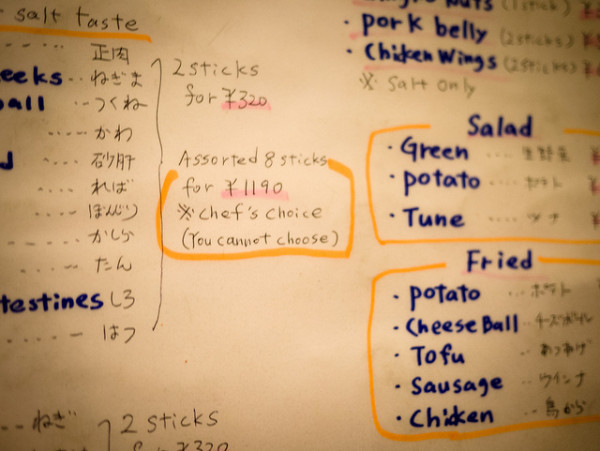 salt taste
正肉
eeks ねぎま
ball つくね
かわ
砂肝
れば
ぼんじり
かしら
たん
testines しろ
はつ
ねぎ
2 sticks
for ¥320
Assorted 8 sticks
for ¥1190
※ chef's choice
(You cannot choose)
2 sticks
for ¥320
Nuts (1stick)
・pork belly (2sticks)
・Chicken Wings (2sticks)
※ Salt only
Salad
・Green 生野菜
・potato ポテト
・Tune ツナ
Fried
・potato ポテト
・Cheese Ball チーズボール
・Tofu あつあげ
・Sausage ウインナ
・Chicken 鳥から